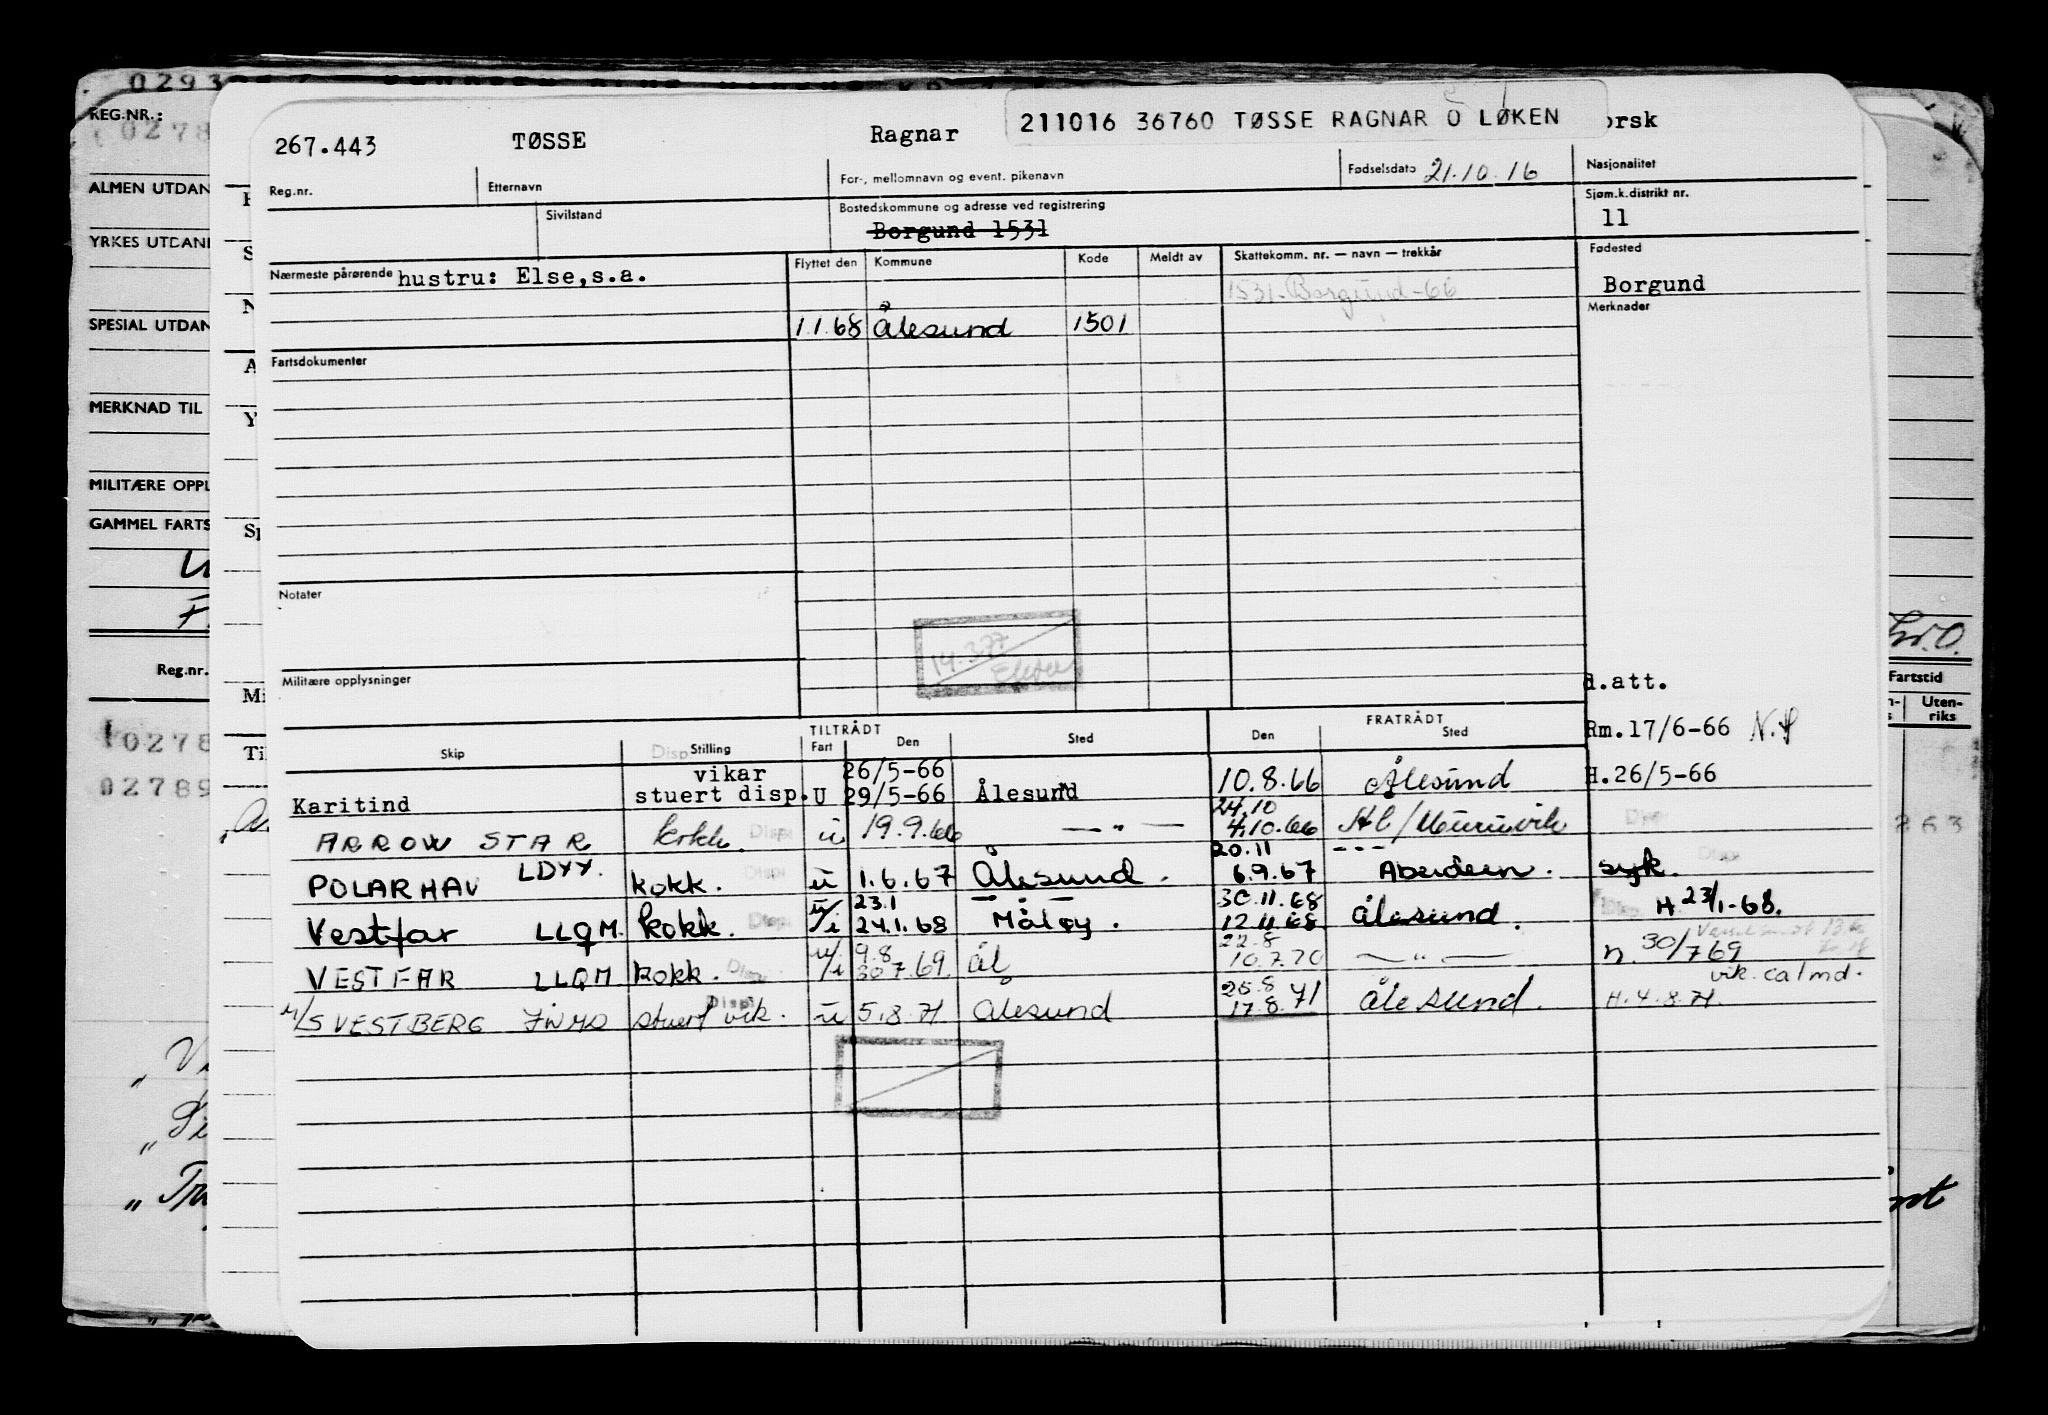 REG.NR.:
0278
ALMEN UTDAN
YRKES UTDAN
SPESIAL UTDAN
MERKNAD TIL
MILITÆRE OPPL
GAMMEL FARTS
Reg.nr.
0278
02789
267.443 TØSSE Ragnar 211016 36760 TØSSE RAGNAR O LØKEN orsk
Reg.nr. Etternavn For-, mellomnavn og event. pikenavn Fødselsdato 21.10.16 Nasjonalitet
Sivilstand Bostedskommune og adresse ved registrering Sjøm.k.distrikt nr.
Borgund 1531 11
Nærmeste pårørende hustru: Else,s.a. Flyttet den Kommune Kode Meldt av Skattekomm. nr. — navn — trekkår Fødested
1531. Borgund-66 Borgund
1.1.68 Ålesund 1501 Merknader
Fartsdokumenter
Notater
14.377
Militære opplysninger
d.att.
TILTRÅDT FRATRÅDT
Skip Stilling Fart Den Sted Den Sted Rm.17/6-66
vikar 26/5-66
Karitind stuert disp. U 29/5-66 Ålesund 10.8.66 Ålesund H.26/5-66
24.10
ARROW STAR kokk. Disp u 19.9.66 — " — 4.10.66
20.11 ---
POLARHAV LDYY. kokk. Disp u 1.6.67 Ålesund. 6.9.67 Aberdeen. syk.
23.1 30.11.68
Vestfar LLQM. kokk. Disp u/i 24.1.68 Måløy. 12.11.68 Ålesund. H 23/1-68.
9.8 22.8
VESTFAR LLQM kokk. Disp u/i 30.7.69 Ål 10.7.70 — " — n. 30/7 69
vik. ca 1 md.
Disp 26.8
M/S VESTBERG JWMO stuert vik. u 5.8.71 Ålesund 17.8.71 Ålesund. H.4.8.71
Fartstid
Uten-
riks
263